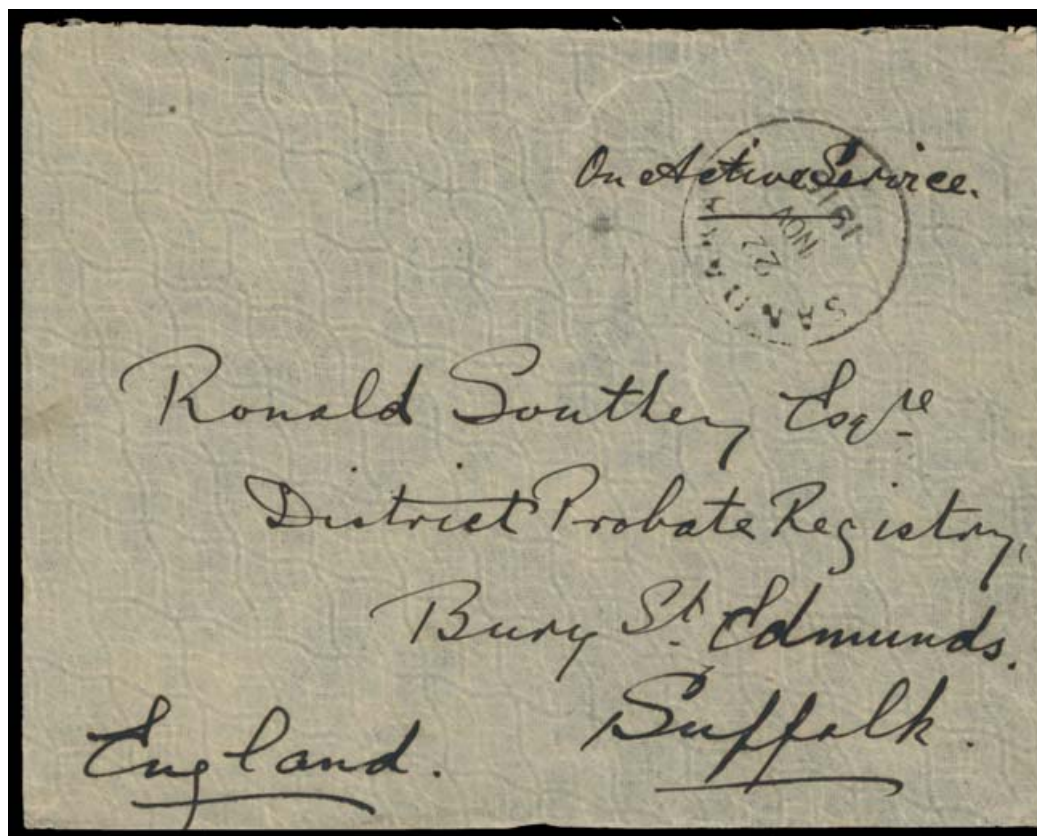 On Active Service.
22
NOV
Ronald Southey Esqre
District Probate Registry,
Bury St. Edmunds.
Suffolk.
England.